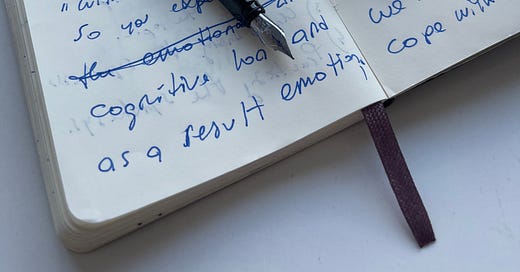 so you
the emotiona
cognitive load and
as a result emotion
we
cope with